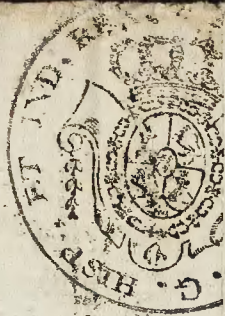 · G · HISP · ET IND · R